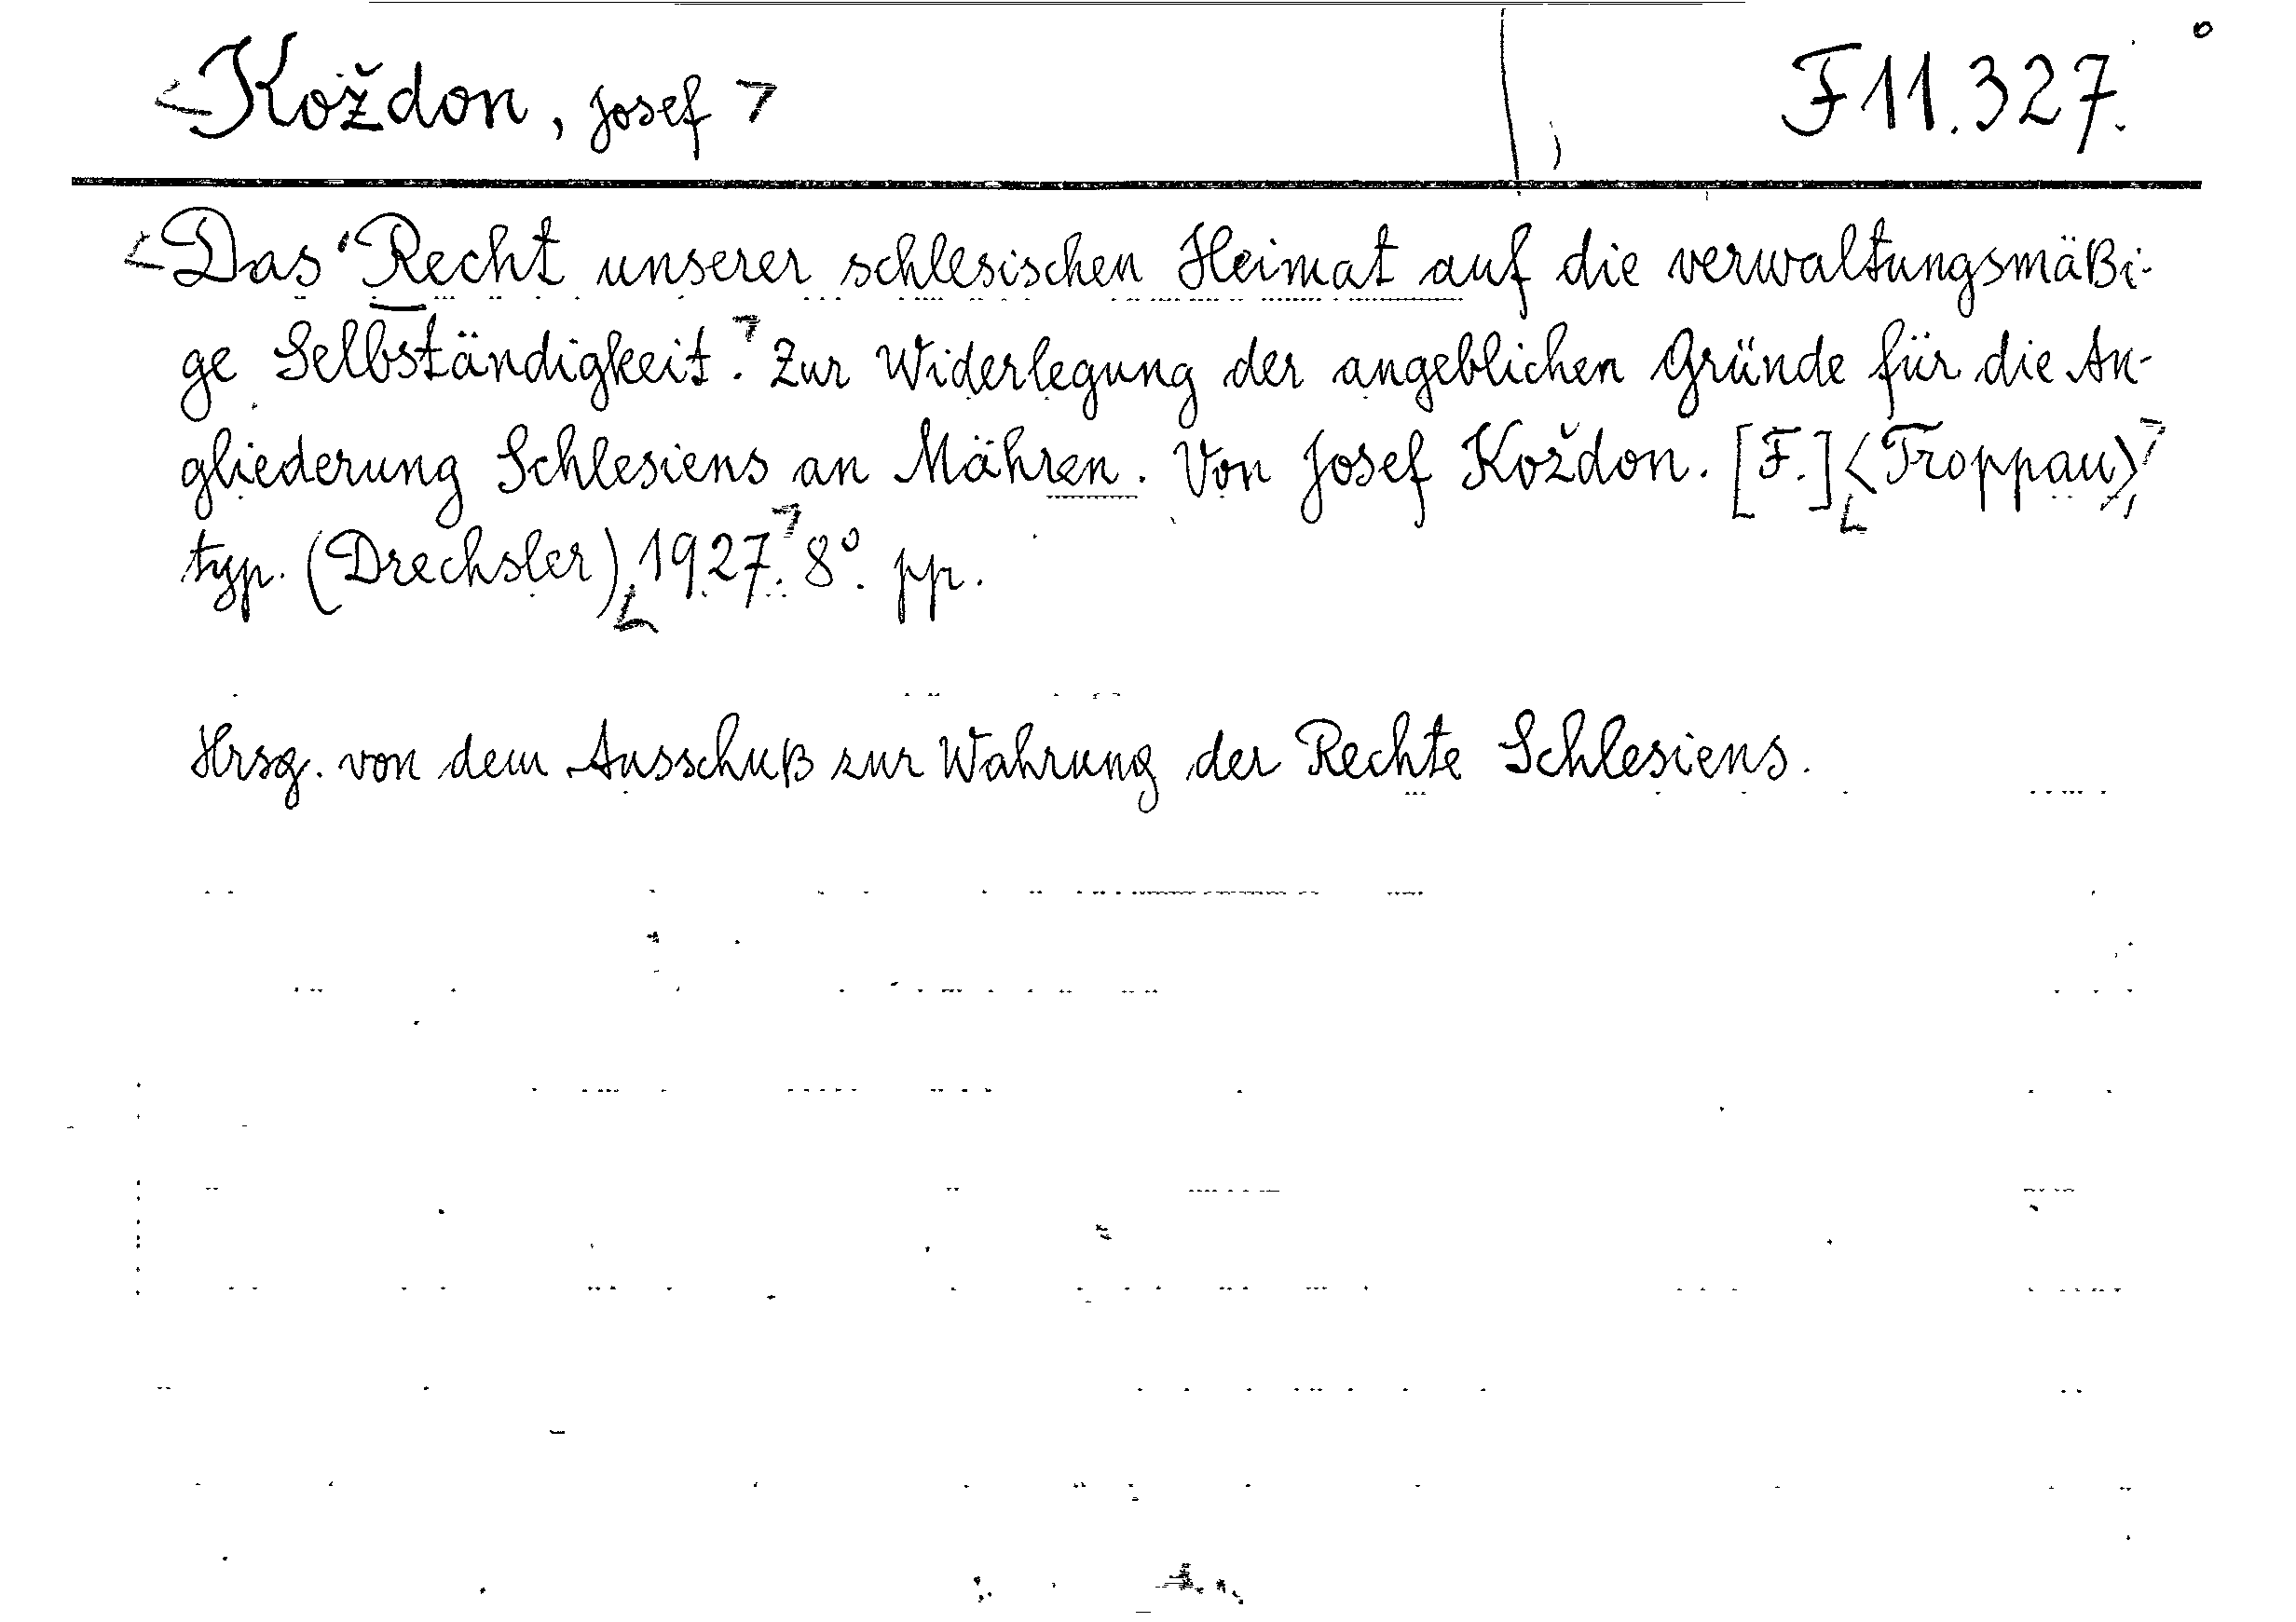 <Koždon, Josef> F 11.327.
<Das Recht unserer schlesischen Heimat auf die verwaltungsmäßi-
ge Selbständigkeit.> Zur Widerlegung der angeblichen Gründe für die An-
gliederung Schlesiens an Mähren. Von Josef Koždon. [F.] <(Troppau)>,
typ. (Drechsler) <1927.> 8°. pp.
Hrsg. von dem Ausschuß zur Wahrung der Rechte Schlesiens.